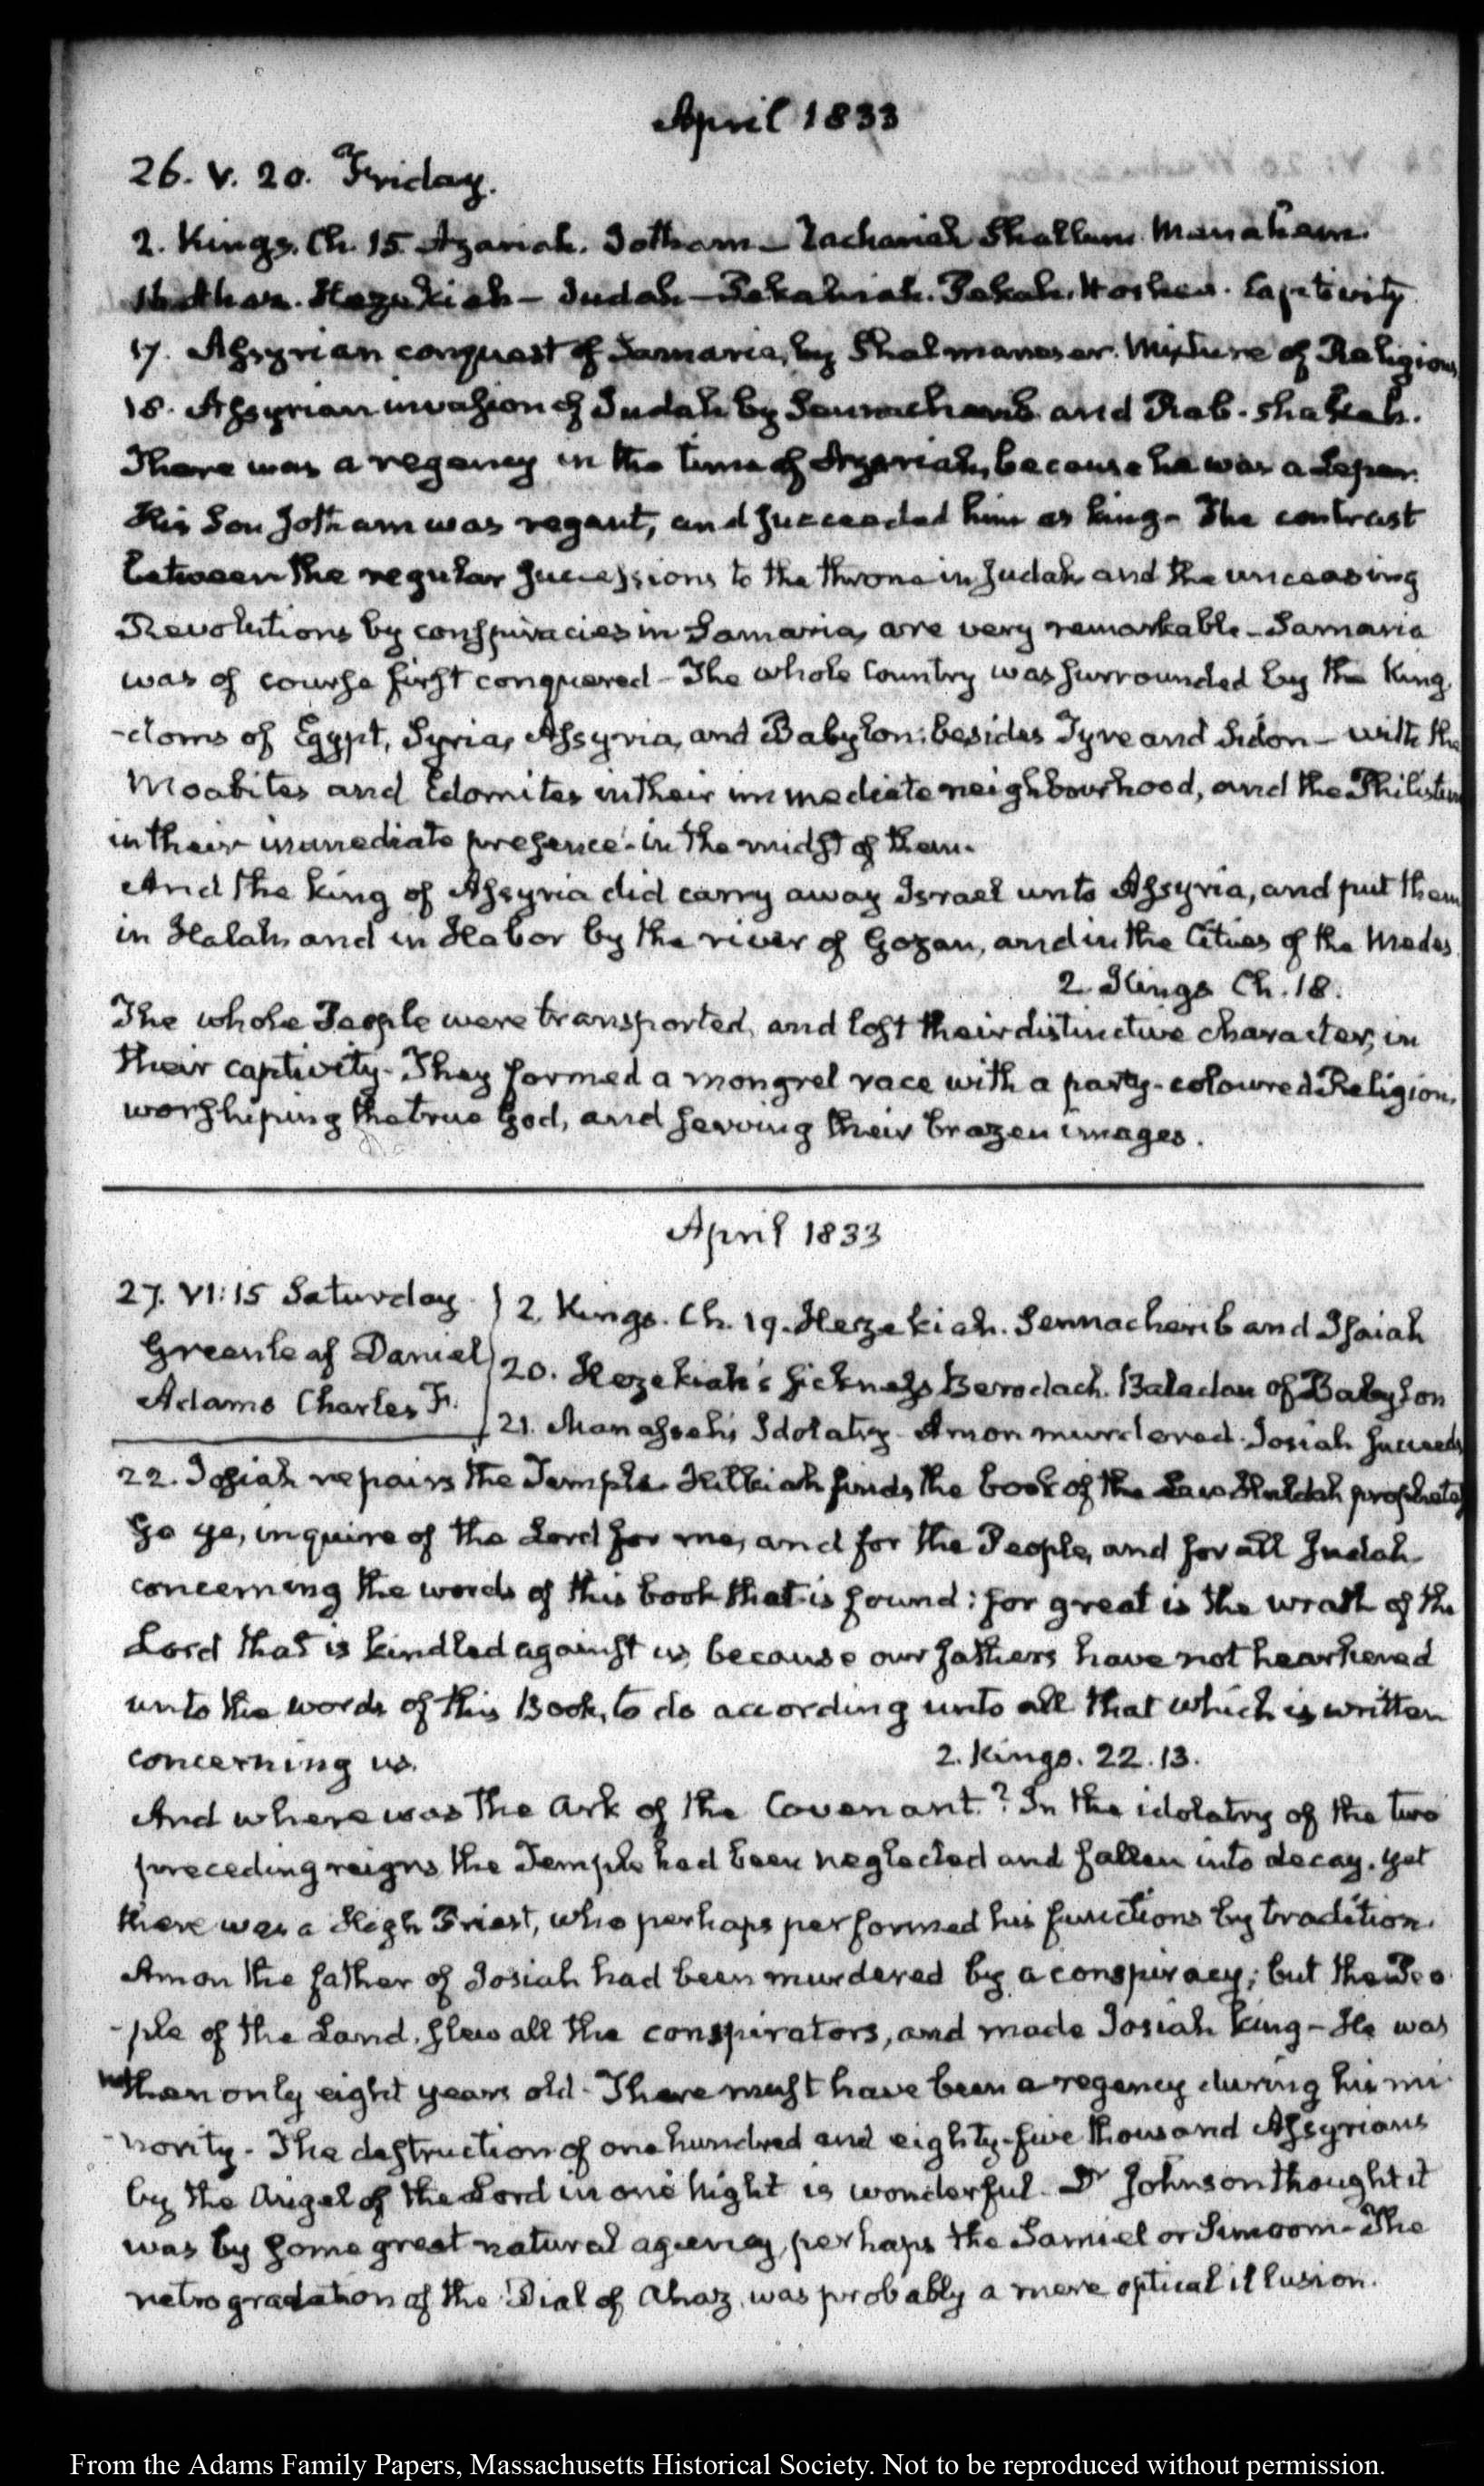 April 1833
26. V. 20. Friday.
2. Kings. Ch. 15. Azariah. Jotham — Zachariah Shallum. Manahem.
16 Ahaz. Hezekiah — Judah — Pekahiah. Pekah. Hoshea. Captivity
17. Assyrian conquest of Samaria, by Shalmaneser. Mixture of Religions
18. Assyrian invasion of Judah by Sennacherib and Rab-shakeh.
There was a regency in the time of Azariah, because he was a Leper.
His Son Jotham was regent, and succeeded him as king - The contrast
between the regular successions to the throne in Judah and the unceasing
Revolutions by conspiracies in Samaria, are very remarkable - Samaria
was of course first conquered - The whole Country was surrounded by the King
-doms of Egypt, Syria, Assyria, and Babylon; besides Tyre and Sidon - with the
Moabites and Edomites in their immediate neighbourhood, and the Philistines
in their immediate presence - in the midst of them.
And the king of Assyria did carry away Israel unto Assyria, and put them
in Halah and in Habor by the river of Gozan, and in the Cities of the Medes.
2 Kings Ch. 18.
The whole People were transported, and lost their distinctive character, in
their captivity - They formed a mongrel race with a party-coloured Religion,
worshiping the true God, and serving their brazen images.
April 1833
27. VI:15 Saturday
Greenleaf Daniel
Adams Charles F.
2. Kings. Ch. 19. Hezekiah. Sennacherib and Isaiah
20. Hezekiah's sickness Berodach. Baladan of Babylon
21. Manasseh's Idolatry - Amon murdered. Josiah succeeds
22. Josiah repairs the Temple. Hilkiah finds the book of the Law Huldah prophetess
Go ye, inquire of the Lord for me, and for the People, and for all Judah
concerning the words of this book that is found: for great is the wrath of the
Lord that is kindled against us, because our fathers have not hearkened
unto the words of this Book, to do according unto all that which is written
concerning us. 2. Kings. 22. 13.
And where was the Ark of the Covenant? In the idolatry of the two
preceding reigns the Temple had been neglected and fallen into decay. yet
there was a High Priest, who perhaps performed his functions by tradition.
Amon the father of Josiah had been murdered by a conspiracy; but the Peo
-ple of the Land, slew all the conspirators, and made Josiah king - He was
then only eight years old - There must have been a regency during his mi
-nority - The destruction of one hundred and eighty-five thousand Assyrians
by the Angel of the Lord in one night is wonderful - Dr Johnson thought it
was by some great natural agency, perhaps the Samiel or Simoom - The
retrogradation of the Dial of Ahaz, was probably a mere optical illusion.
From the Adams Family Papers, Massachusetts Historical Society. Not to be reproduced without permission.